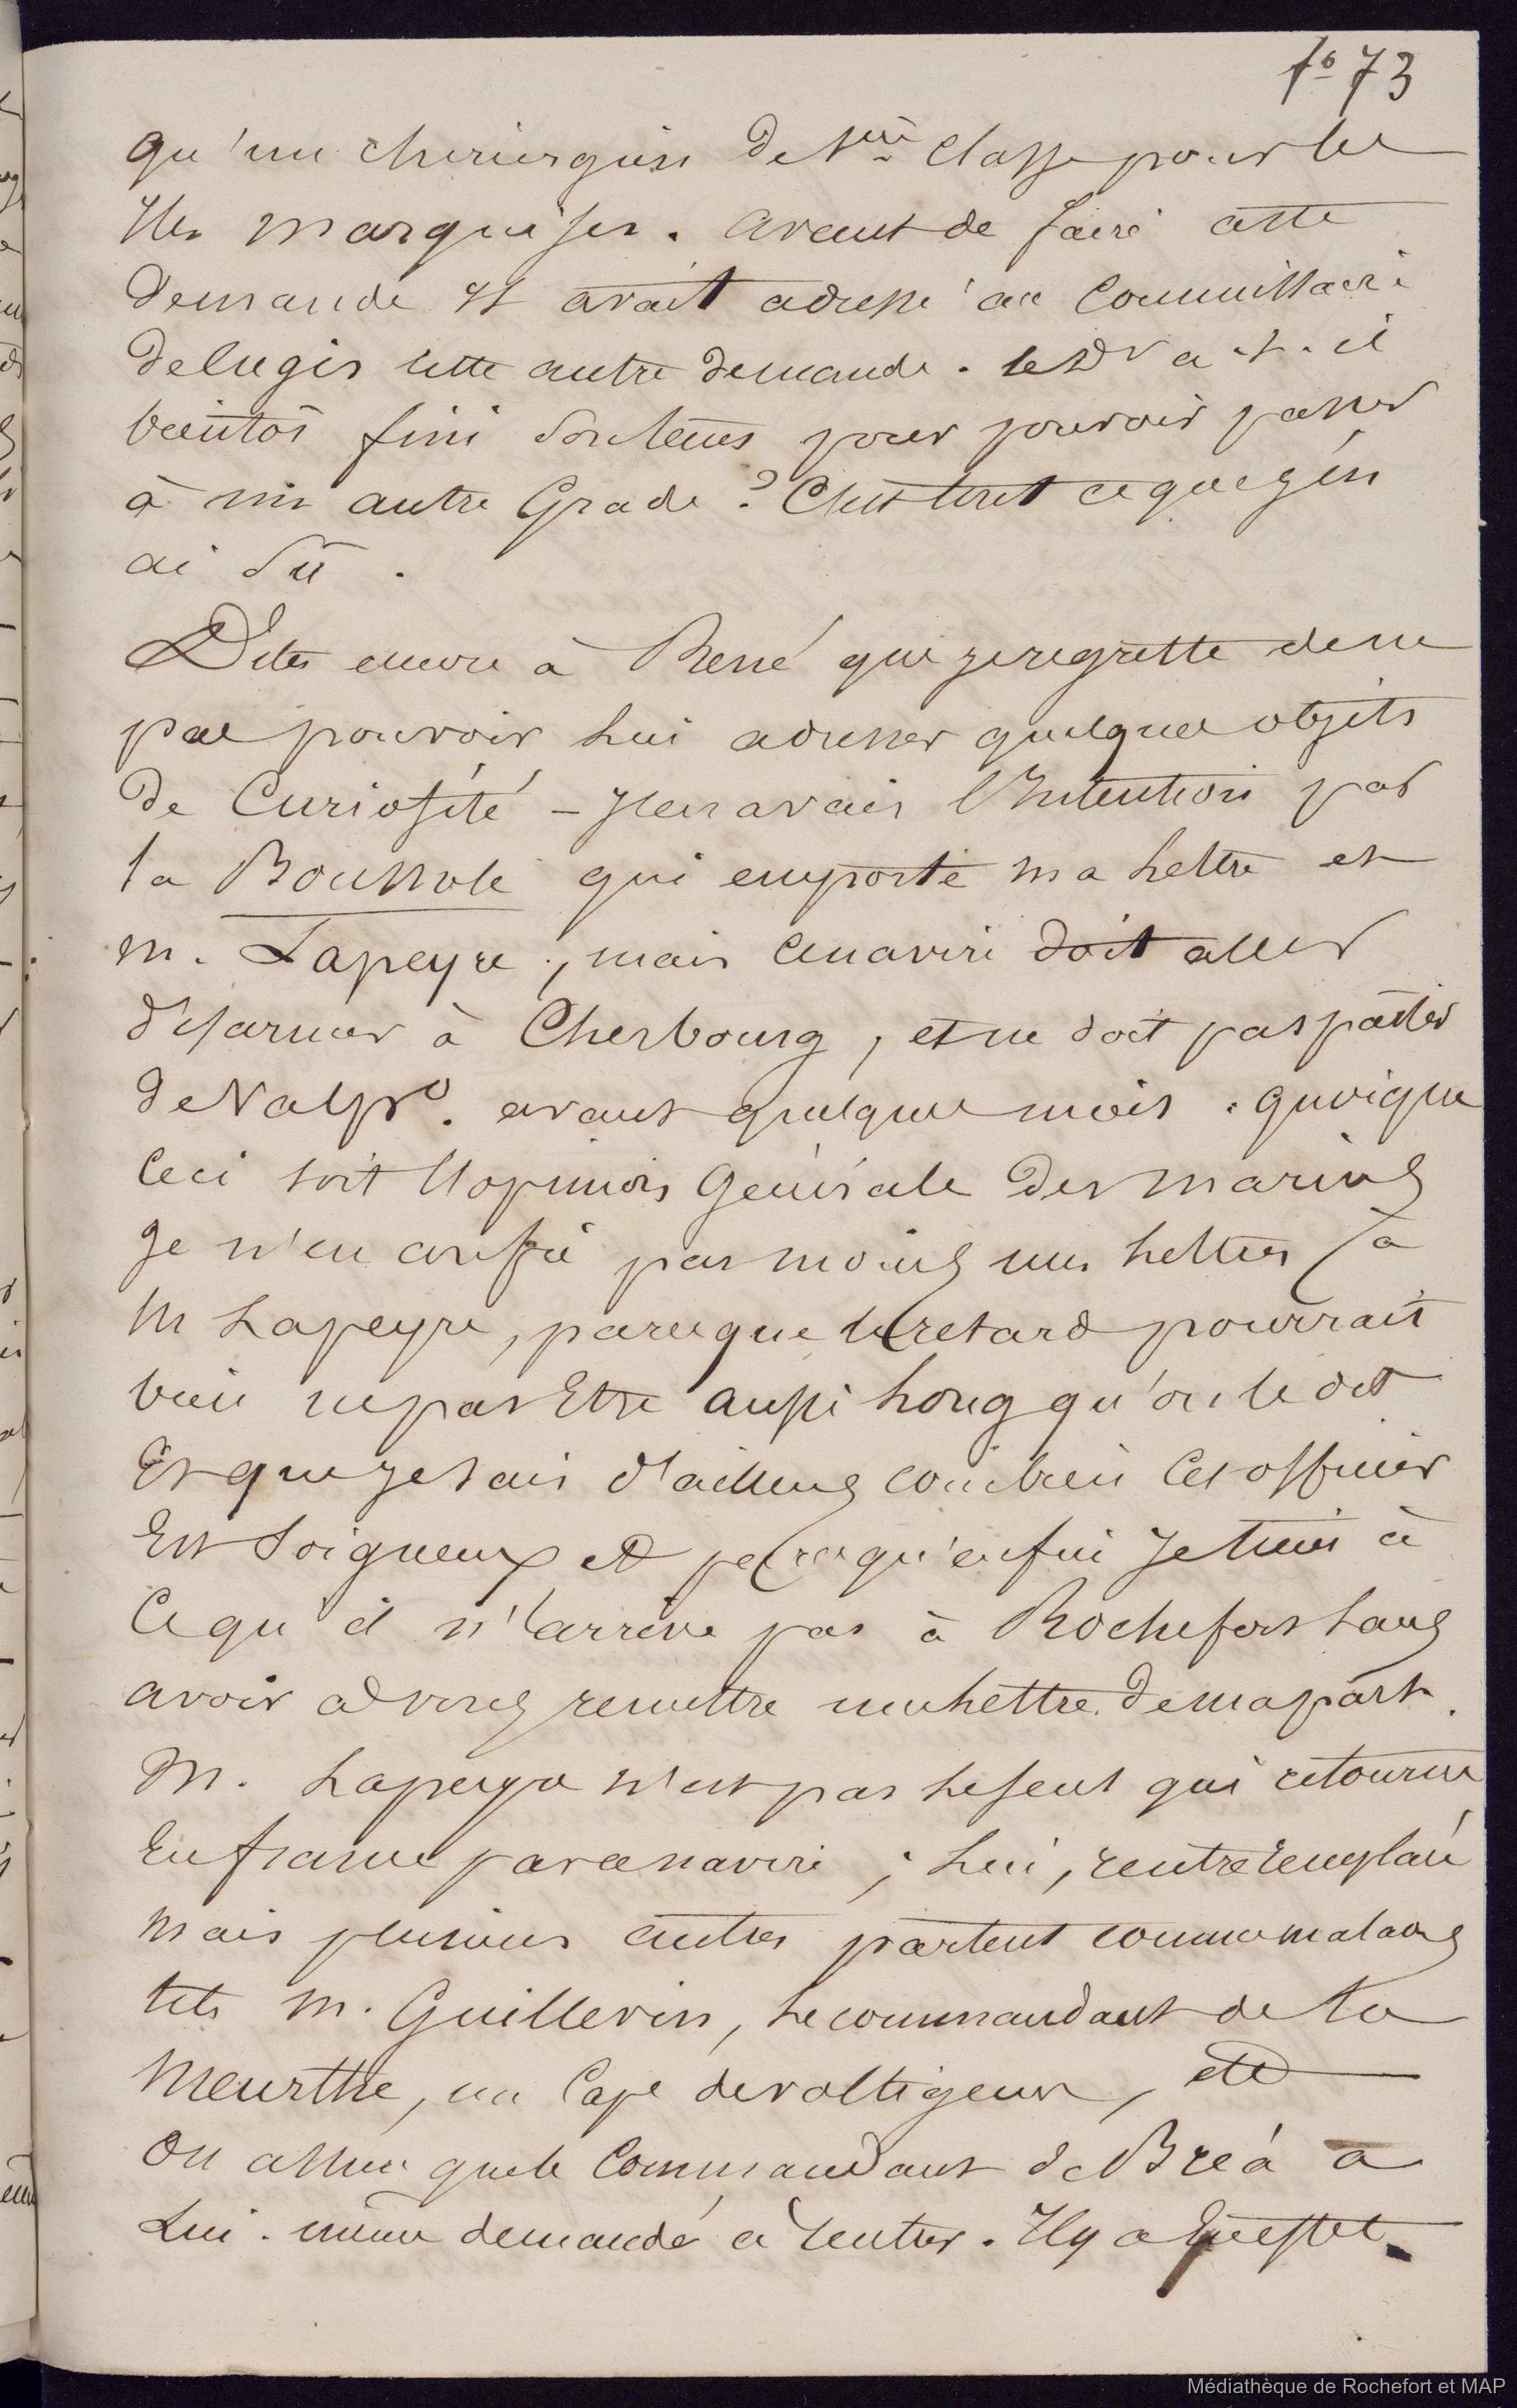 fo 73
qu'un chirurgien de 1ere classe pour les
Iles marquises. avant de faire cette
demande il avait adressé au Commissaire
cette autre demande. le Dr a-t-il
bientôt fini son tems pour pouvoir passer
à un autre Grade ? C'est tout ce que j'en
ai sû.
Dites encore à René que je regrette de ne
pas pouvoir lui adresser quelques objets
de Curiosité - J'en avais l'Intention par
la Boussole qui emporte ma lettre et
m. Lapeyre, mais ce navire doit aller
désarmer à Cherbourg, et ne doit pas partir
de Valpso. avant quelques mois. quoique
Ceci soit l'opinion Générale des marins
Je n'en confie pas moins mes lettres à
M Lapeyre, parce que le retard pourrait
bien ne pas Etre aussi long qu'on le dit
Et que je sais d'ailleurs combien cet officier
Est soigneux et parcequ'enfin Je tiens à
Ce qu'il n'arrive pas à Rochefort sans
avoir à vous remettre une lettre de ma part.
M. Lapeyre n'est pas le seul qui retourne
En france par ce navire ; lui, rentre remplacé
mais plusieurs autres partent comme malades
tels M. Guillevin, le commandant de la
Meurthe, un Cape de voltigeurs, etc
On assure que le Commandant de Bréa a
Lui-même demandé à rentrer. Il y a En effet
Médiathèque de Rochefort et MAP